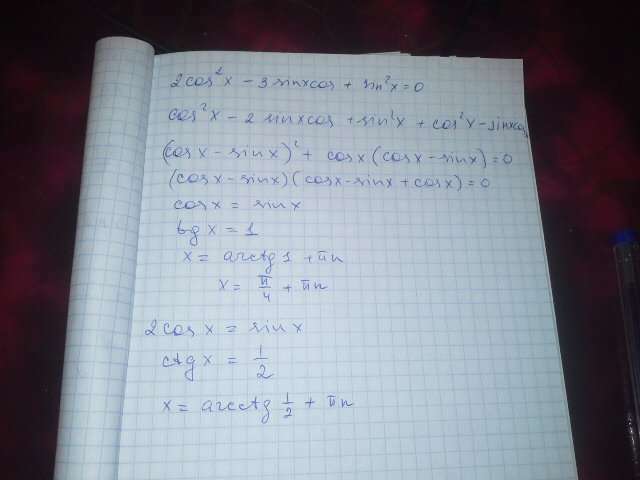 2cos²x - 3sinxcos + sin²x = 0
cos²x - 2 sinxcos + sin²x + cos²x - sinxcos
(cosx - sinx)² + cosx (cosx - sinx) = 0
(cosx - sinx)(cosx - sinx + cosx) = 0
cosx = sinx
tgx = 1
x = arctg 1 + πn
x = π/4 + πn
2cosx = sinx
ctgx = 1/2
x = arcctg 1/2 + πn